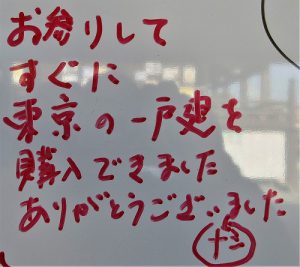 お参りして
すぐに
東京の一戸建を
購入できました
ありがとうございました